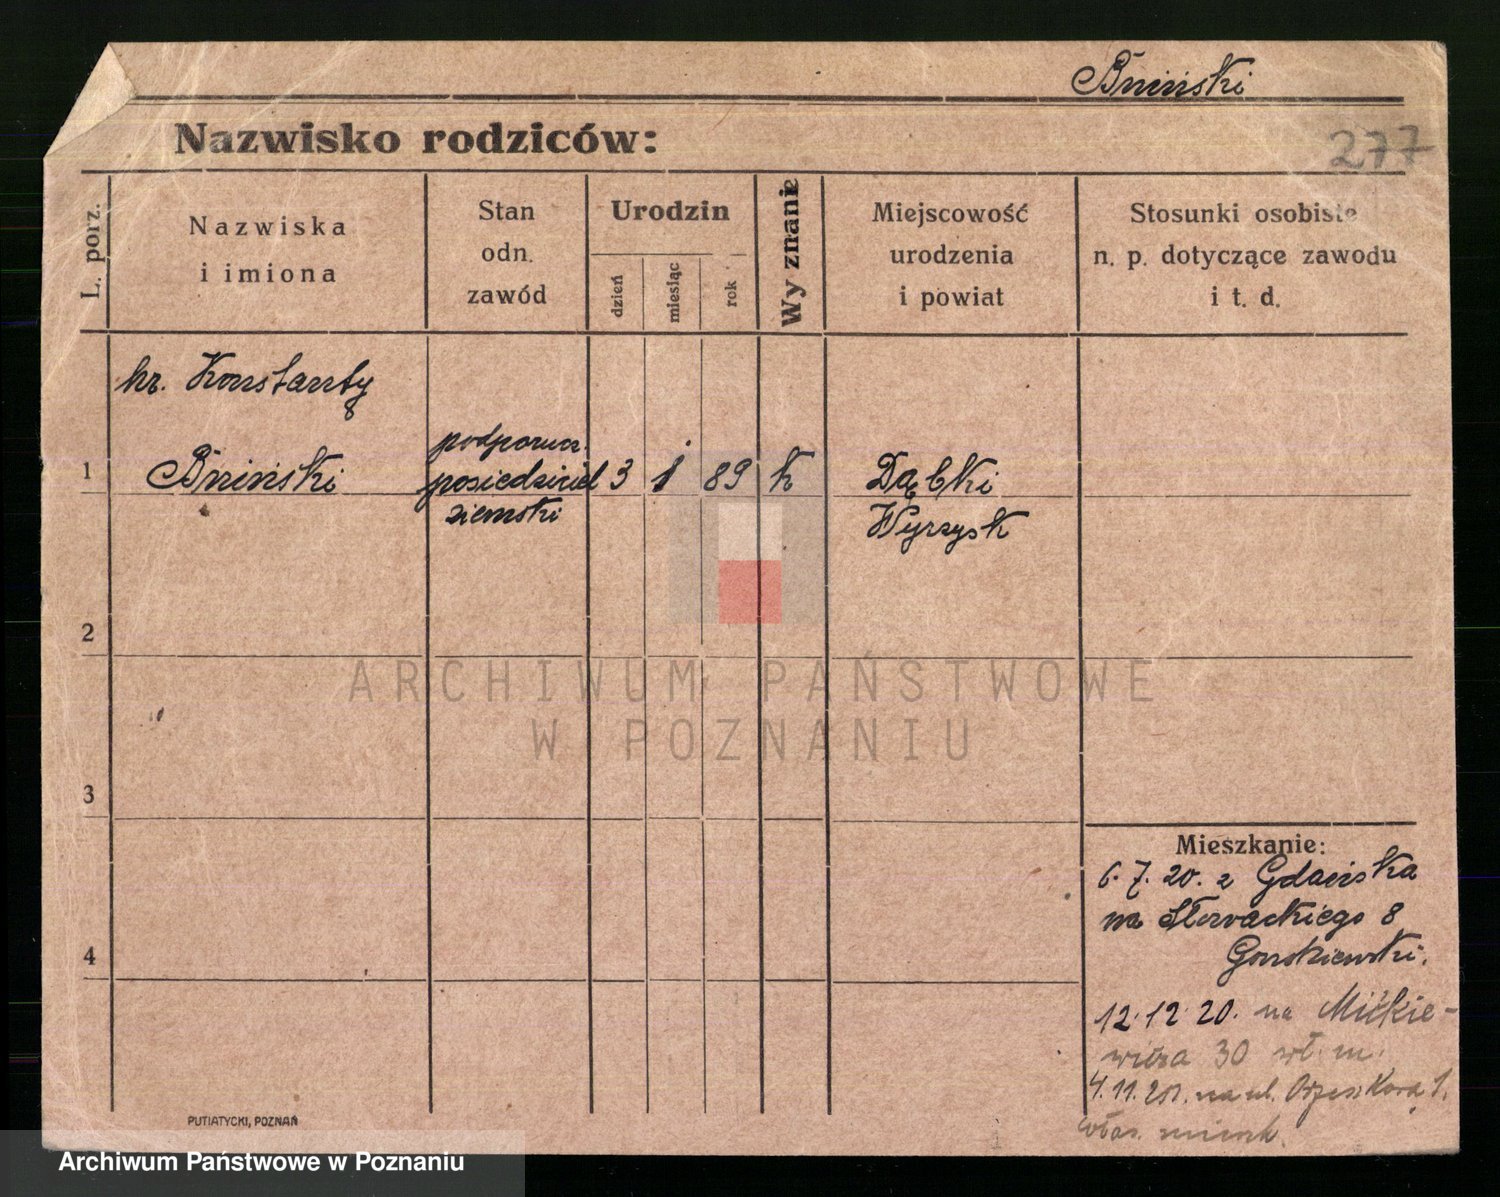 Bniński
Nazwisko rodziców:
277
L. porz.
Nazwiska
i imiona
Stan
odn.
zawód
Urodzin
dzień
miesiąc
rok
Wyznanie
Miejscowość
urodzenia
i powiat
Stosunki osobiste
n. p. dotyczące zawodu
i t. d.
hr. Konstanty
1
Bniński
podporucz.
posiedziciel
ziemski
3
1
89
k
Dąbki
Wyrzysk
2
3
4
ARCHIWUM PAŃSTWOWE
W POZNANIU
Mieszkanie:
6. 7. 20. z Gdańska
na Słowackiego 8
12.12 20. na Mickie-
wicza 30 wł. m.
4. 11. na ul. Orzeszkowa
PUTIATYCKI, POZNAŃ
Archiwum Państwowe w Poznaniu